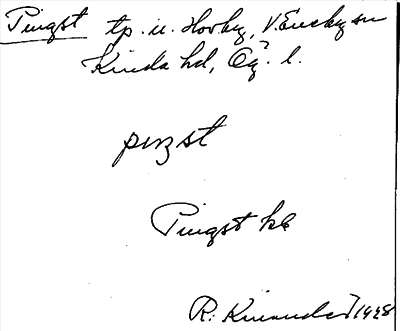 Pingst tp. u. Hovby, V. Eneby sn
Kinda hd, Ög. l.
pıŋst
Pingst hb
R. Kinander 1928